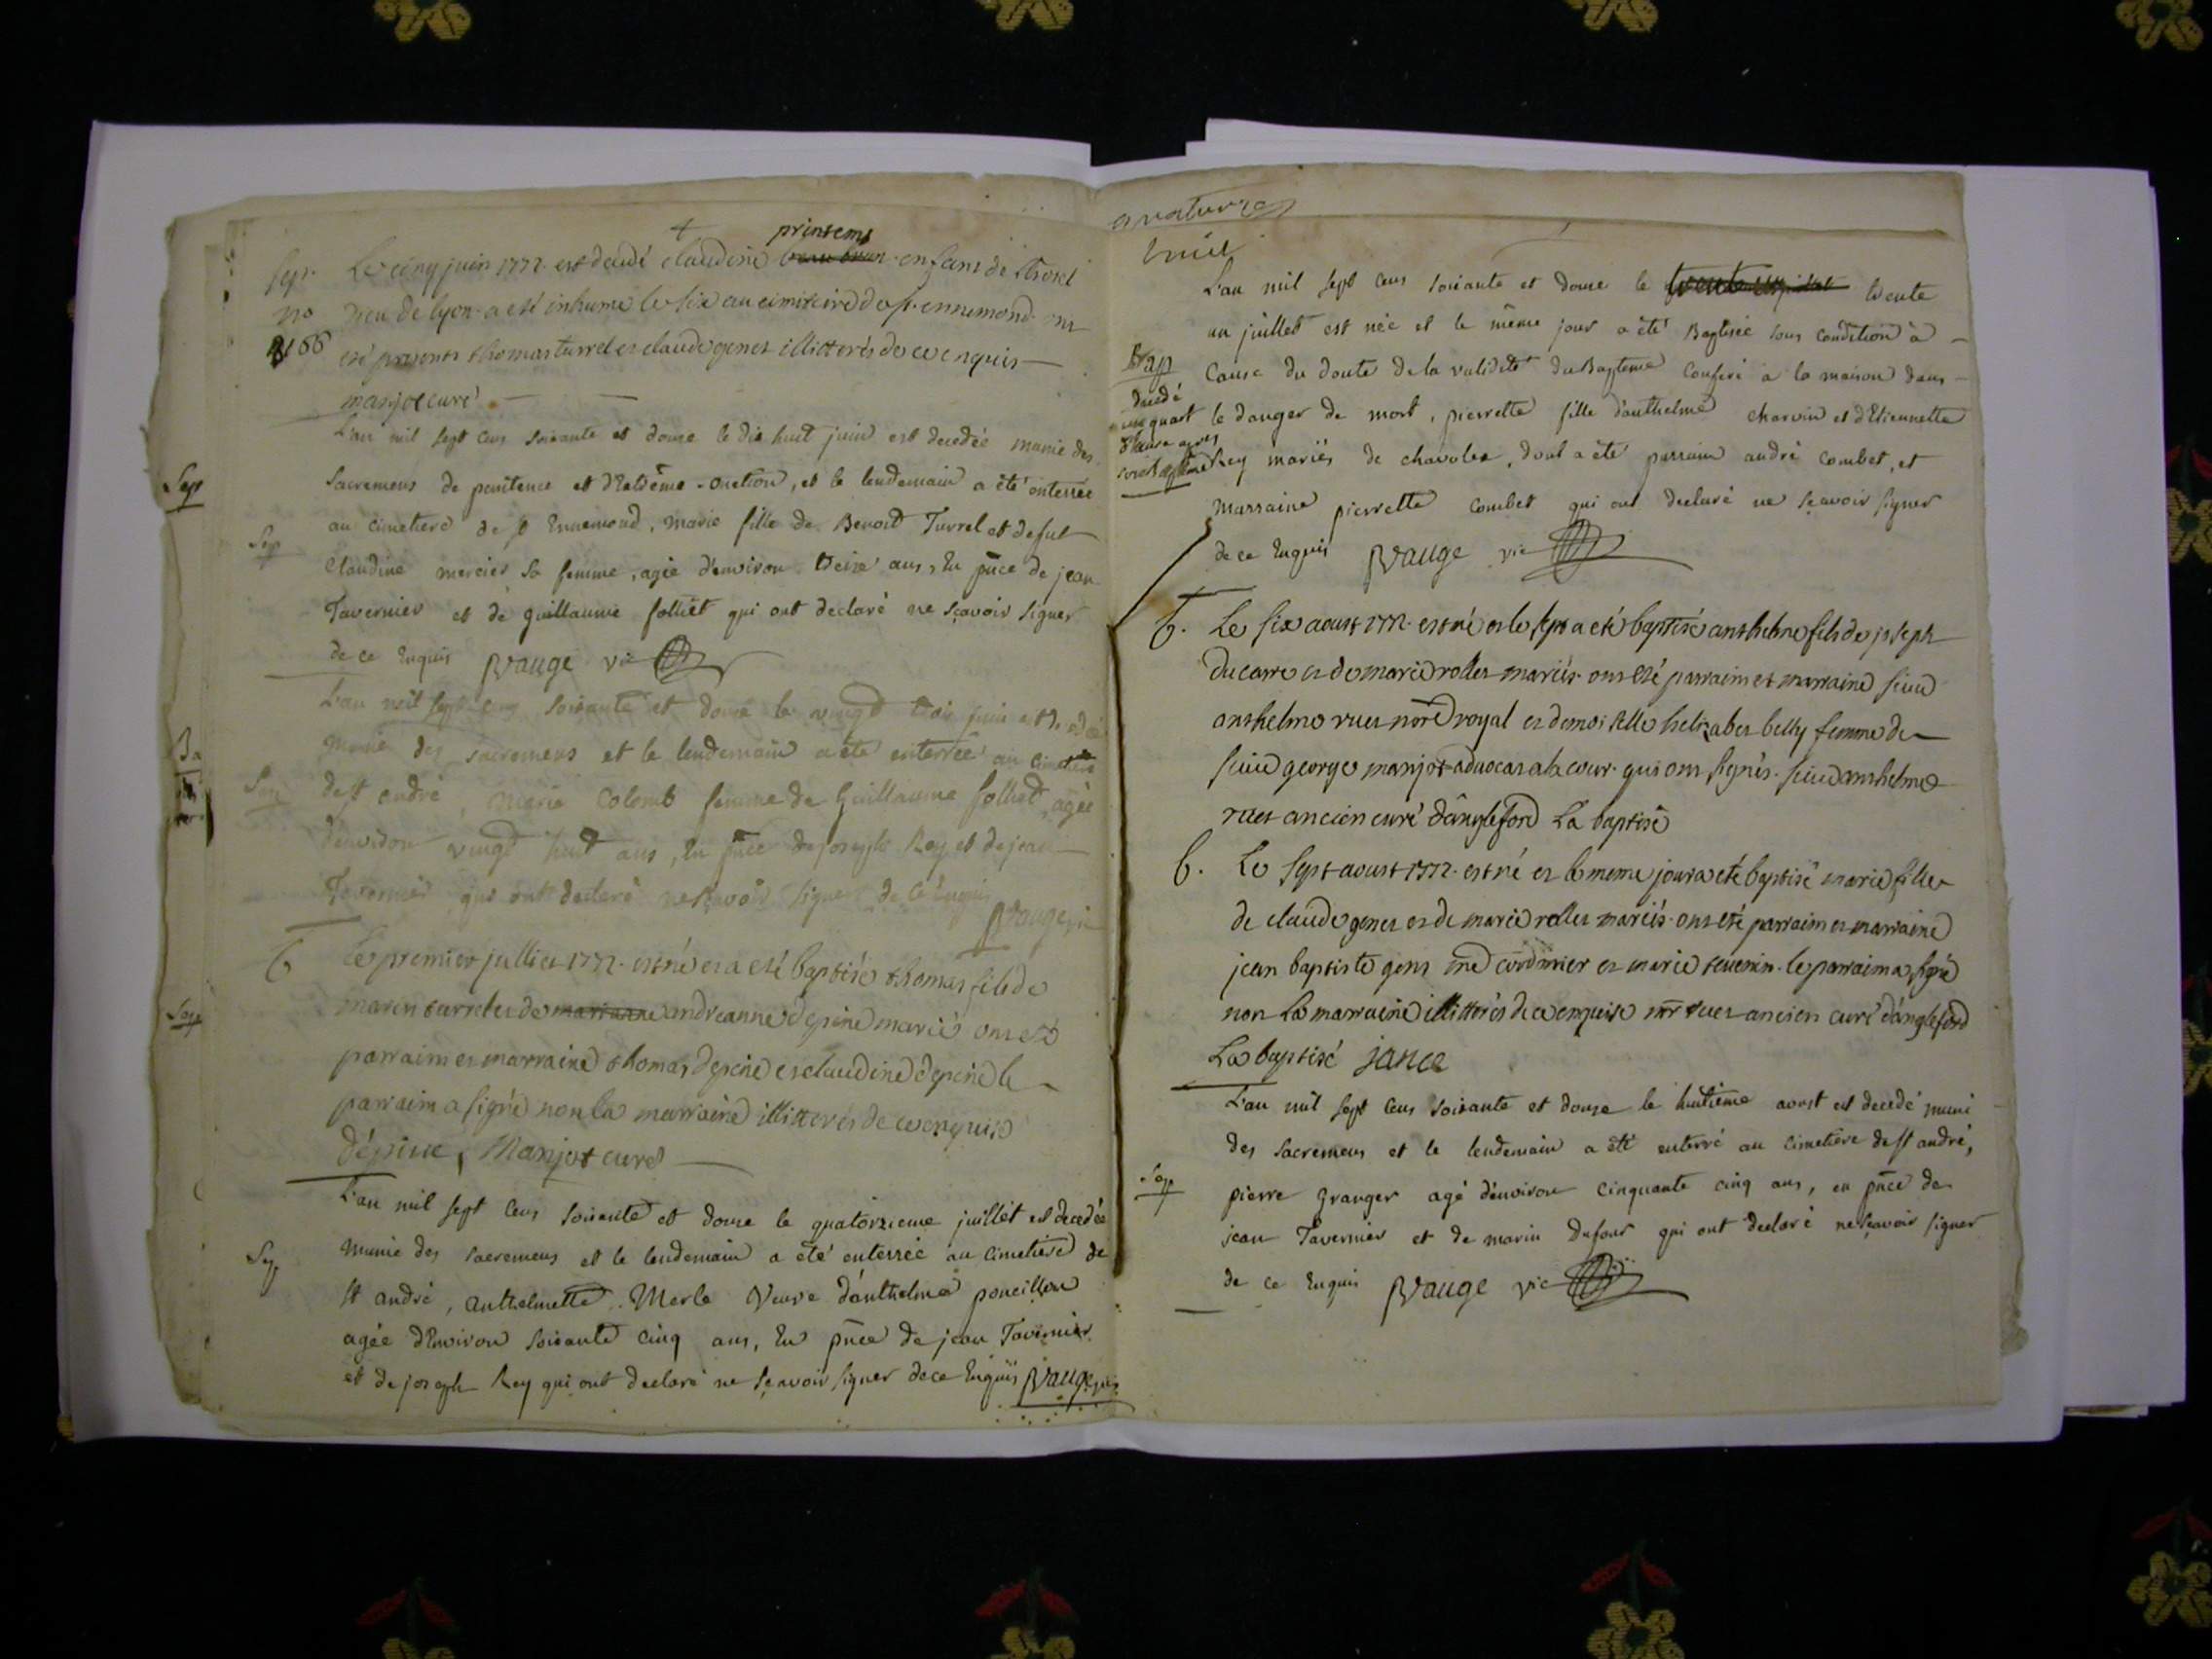 printems
sep. Le cinq juin 1772. est decedé claudine enfans de lhotel
no Dieu de lyon. a eté inhumé le six au cimitière de st. ennemond. ont
4166 eté presents thomas turrel et claude genet illitterés de ce enquis
manjot curé
L'an mil sept cens soixante et douze le dix huit juin est decedée munie des
Sep sacremens de penitence et d'Extrême-onction, et le lendemain a été enterrée
au cimetiere de st Ennemond, marie fille de Benoit Turrel et de fut
Sep Claudine mercier sa femme, agée d'environ treize ans, En pñce de jean
Tavernier et de guillaume folliet qui ont declaré ne sçavoir signer
de ce Enquis PVauge vic
L'an mil sept cens soixante et douze le vingt trois juin est decedée
munie des sacremens et le lendemain a été enterrée au cimetiere
Sep de st andré, marie Colomb femme de Guillaume folliet, agée
d'environ vingt huit ans, En pñce de joseph Rey et de jean
Tavernier qui ont declaré ne sçavoir signer de ce Enquis
PVauge vic
b Le premier jullies 1772. est né et a eté baptisé thomas fils de
marin turrel et de marianne andreanne depine mariés ont eté
parrain et marraine thomas depine et claudine depine le
parrain a signé non la marraine illitterés de ce enquise
Dépine, Manjot curé
L'an mil sept cens soixante et douze le quatorzieme juillet est decedée
Sep munie des sacremens et le lendemain a été enterrée au cimetiere de
st andré, anthelmette Merle Veuve d'anthelme poncillon
agée d'Environ soixante cinq ans, En pñce de jean Tavernier
et de joseph Rey qui ont declaré ne sçavoir signer de ce Enquis PVauge vic
L'an mil sept cens soixante et douze le trente
un juillet est née et le même jour a été Baptisée sous condition à
Bap cause du doute de la validité du Bapteme conferé a la maison dans
decedé
un quart le danger de mort, pierrette fille d'anthelme charvin et d'Etiennette
d'heure apres
son bapteme Rey mariés de chavolex, dont a été parrain andré combet, et
marraine pierrette combet qui ont declaré ne sçavoir signer
de ce Enquis PVauge vic
b. Le six aoust 1772. est né et le sept a eté baptisé anthelme fils de joseph
ducarre et de marie rollet mariés. ont eté parrain et marraine sieur
anthelme ruet nore royal et demoiselle helizabet belly femme de
sieur george manjot advocat a la cour. qui ont signés. sieur anthelme
ruet ancien curé d'angleford La baptisé
b. Le sept aoust 1772. est né et le meme jour a eté baptisé marie fille
de claude genet et de marie rollet mariés. ont eté parrain et marraine
jean baptiste gens cordonnier et marie tevenin. le parrain a signé
non la marraine illitterés de ce enquise mr ruet ancien curé d'angleford
La baptisé jance
L'an mil sept cens soixante et douze le huitieme aoust est decedé muni
des sacremens et le lendemain a été enterré au cimetiere de st andré,
Sep pierre granger agé d'environ cinquante cinq ans, en pñce de
jean Tavernier et de marin Dufour qui ont declaré ne sçavoir signer
de ce Enquis PVauge vic